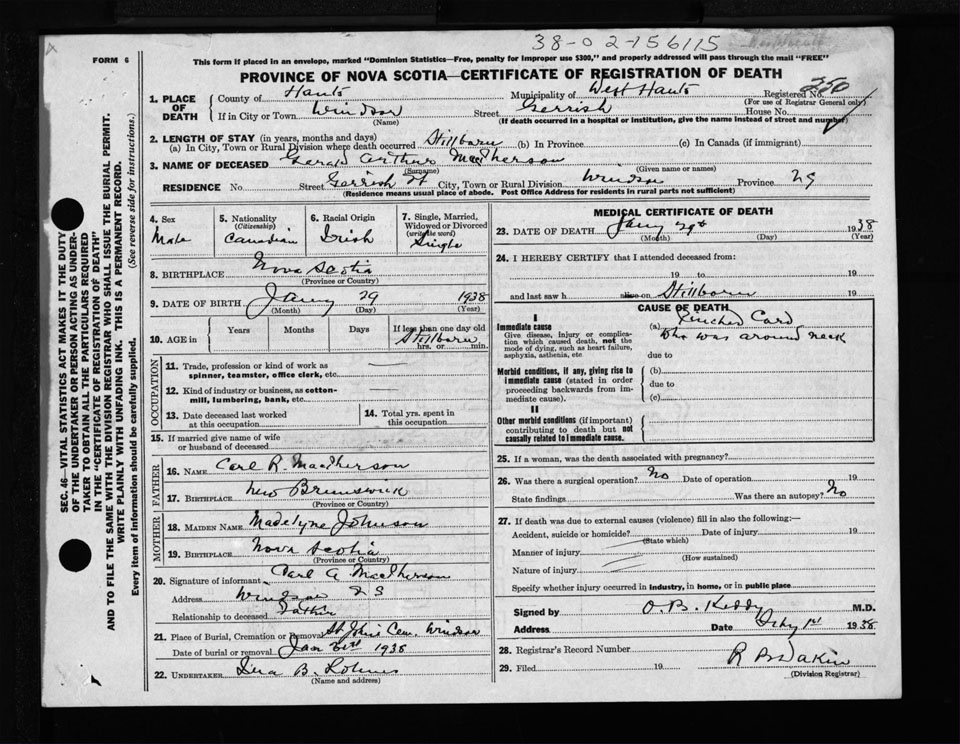 38-02-156115
FORM 6
This form if placed in an envelope, marked "Dominion Statistics—Free, penalty for improper use $300," and properly addressed will pass through the mail "FREE"
PROVINCE OF NOVA SCOTIA—CERTIFICATE OF REGISTRATION OF DEATH
Registered No. 250
(For use of Registrar General only)
1. PLACE OF DEATH
County of Hants Municipality of West Hants
If in City or Town Windsor Street Gerrish House No.
(Name) (If death occurred in a hospital or institution, give the name instead of street and number)
2. LENGTH OF STAY (in years, months and days)
(a) In City, Town or Rural Division where death occurred Stillborn (b) In Province (c) In Canada (if immigrant)
3. NAME OF DECEASED Arthur MacPherson
(Surname) (Given name or names)
RESIDENCE No. Street Gerrish St City, Town or Rural Division Windsor Province NS
(Residence means usual place of abode. Post Office Address for residents in rural parts not sufficient)
4. Sex Male
5. Nationality (Citizenship) Canadian
6. Racial Origin Irish
7. Single, Married, Widowed or Divorced (write the word) Single
8. BIRTHPLACE Nova Scotia
(Province or Country)
9. DATE OF BIRTH Jany 29 1938
(Month) (Day) (Year)
10. AGE in Years Months Days If less than one day old Stillborn hrs. or min.
OCCUPATION
11. Trade, profession or kind of work as spinner, teamster, office clerk, etc.
12. Kind of industry or business, as cotton-mill, lumbering, bank, etc.
13. Date deceased last worked at this occupation
14. Total yrs. spent in this occupation
15. If married give name of wife or husband of deceased
FATHER
16. NAME Carl R. MacPherson
17. BIRTHPLACE New Brunswick
MOTHER
18. MAIDEN NAME Madelyne Johnson
19. BIRTHPLACE Nova Scotia
(Province or Country)
20. Signature of informant Carl A MacPherson
Address Windsor NS
Relationship to deceased Father
21. Place of Burial, Cremation or Removal St John's Cem. Windsor
Date of burial or removal Jan 31st 1938
22. UNDERTAKER B.
(Name and address)
MEDICAL CERTIFICATE OF DEATH
23. DATE OF DEATH Jany 29th 1938
(Month) (Day) (Year)
24. I HEREBY CERTIFY that I attended deceased from:
19 to 19
and last saw h alive on Stillborn 19
CAUSE OF DEATH
I
Immediate cause (a) Cord
Give disease, injury or complication which caused death, not the mode of dying, such as heart failure, asphyxia, asthenia, etc
who was around neck
due to
Morbid conditions, if any, giving rise to immediate cause (stated in order proceeding backwards from immediate cause).
(b)
due to
(c)
II
Other morbid conditions (if important) contributing to death but not causally related to immediate cause.
25. If a woman, was the death associated with pregnancy?
26. Was there a surgical operation? No Date of operation 19
State findings Was there an autopsy? No
27. If death was due to external causes (violence) fill in also the following:—
Accident, suicide or homicide? Date of injury 19
(State which)
Manner of injury
(How sustained)
Nature of injury
Specify whether injury occurred in industry, in home, or in public place
Signed by O. B. Keddy M.D.
Address Date Feby 1st 1938
28. Registrar's Record Number
29. Filed 19 Dakin
(Division Registrar)
SEC. 46—VITAL STATISTICS ACT MAKES IT THE DUTY
OF THE UNDERTAKER OR PERSON ACTING AS UNDER-
TAKER TO OBTAIN ALL THE PARTICULARS REQUIRED
IN THE "CERTIFICATE OF REGISTRATION OF DEATH"
AND TO FILE THE SAME WITH THE DIVISION REGISTRAR WHO SHALL ISSUE THE BURIAL PERMIT.
WRITE PLAINLY WITH UNFADING INK. THIS IS A PERMANENT RECORD.
Every item of information should be carefully supplied. (See reverse side for instructions.)